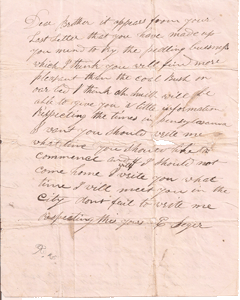 Dear Brother it appears from your
Last Letter that you have made up
you mind to try the pedling buissness
which I think you will find more
plesent then the coal bush on
our Led I think Mr Smith will be
able to give you a little information
Respecting the times in pennsylvania
I want you should write me
what time you should like to
commence and if I should not
come home I will write you what
time I will meet you in the
City dont fail to write me
Respecting this yours E